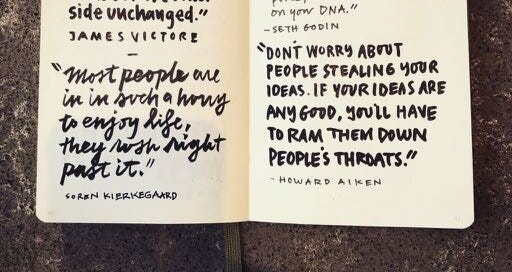 side unchanged."
JAMES VICTORE
—
"Most people are
in in such a hurry
to enjoy life,
they rush right
past it."
SOREN KIERKEGAARD
on your DNA."
-SETH GODIN
"DON'T WORRY ABOUT
PEOPLE STEALING YOUR
IDEAS. IF YOUR IDEAS ARE
ANY GOOD, YOU'LL HAVE
TO RAM THEM DOWN
PEOPLE'S THROATS."
- HOWARD AIKEN